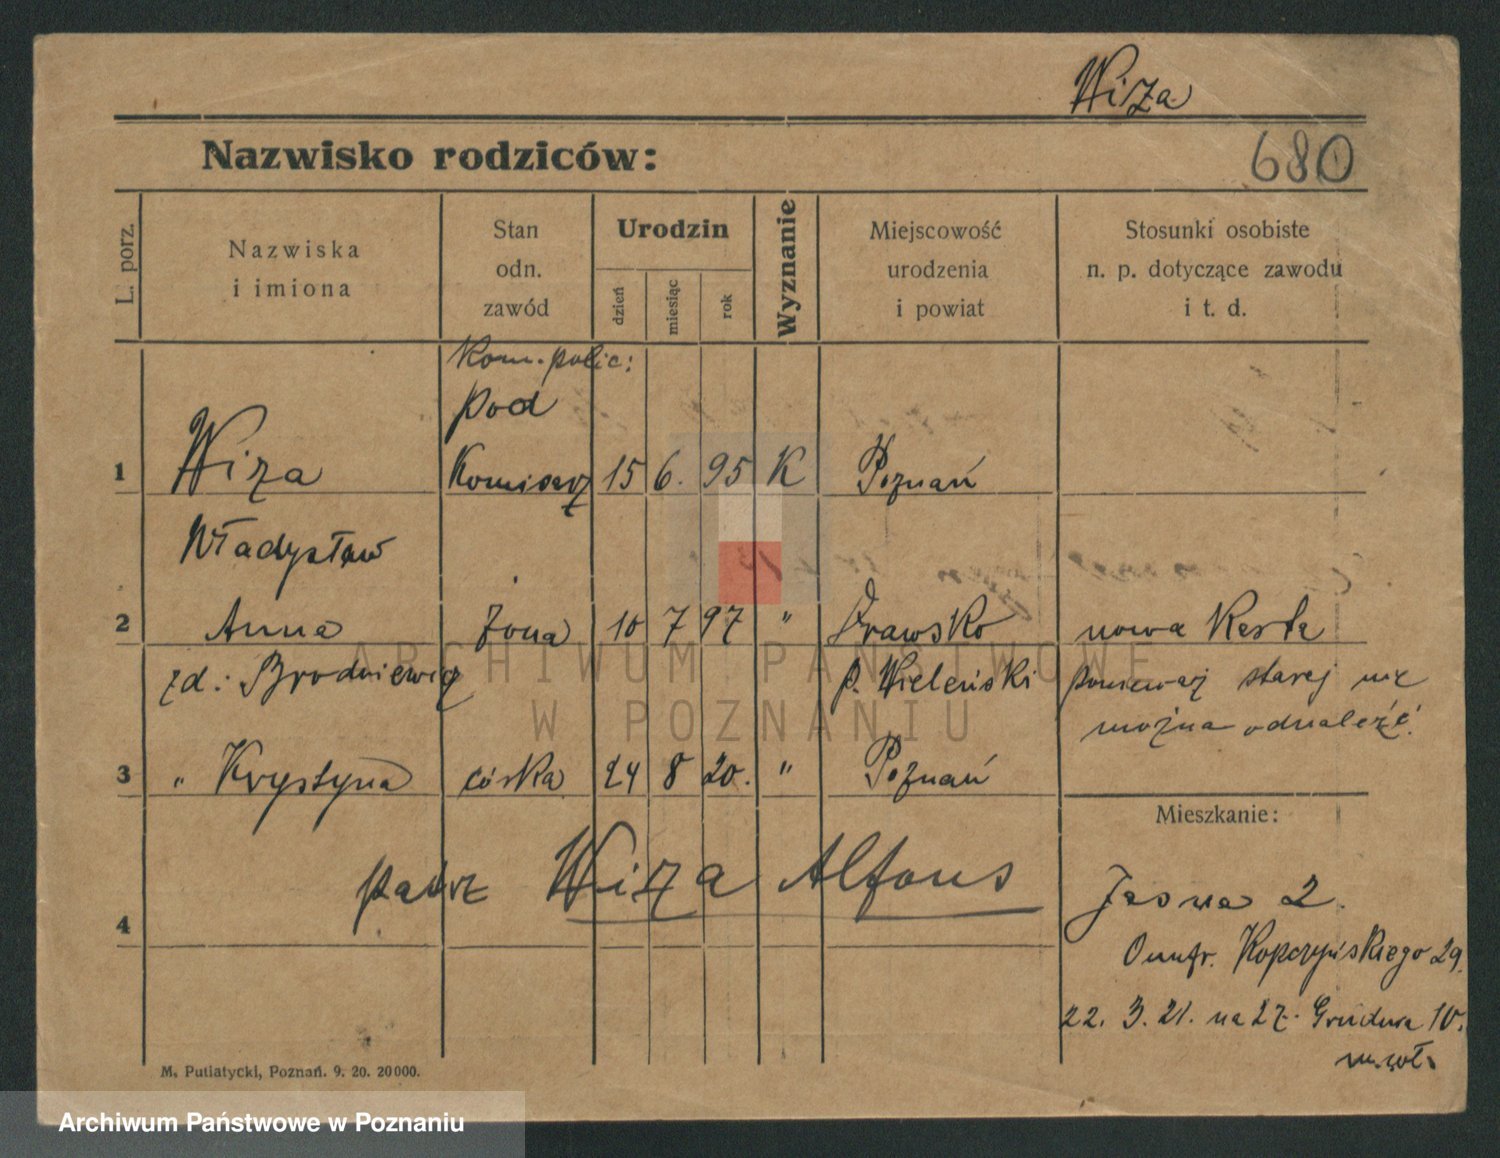 Wiza
Nazwisko rodziców:
680
L. porz.
Nazwiska
i imiona
Stan
odn.
zawód
Urodzin
dzień
miesiąc
rok
Wyznanie
Miejscowość
urodzenia
i powiat
Stosunki osobiste
n. p. dotyczące zawodu
i t. d.
Kom. polic:
pod
1 Wiza Komisarz 15 6. 95 K Poznań
Władysław
2 Anna żona 10 7 97 " Drawsko nowa Karta
zd: Brodniewicz p. Wieleński ponieważ starej nie
można odnaleźć.
3 " Krystyna córka 24 8 20. " Poznań
Mieszkanie:
4 patrz Wiza Alfons
Jasna 2.
Onufr. Kopczyńskiego 29.
22. 3. 21. na 27. Grudnia 10.
M. Putiatycki, Poznań. 9. 20. 20000.
ARCHIWUM PAŃSTWOWE
W POZNANIU
Archiwum Państwowe w Poznaniu